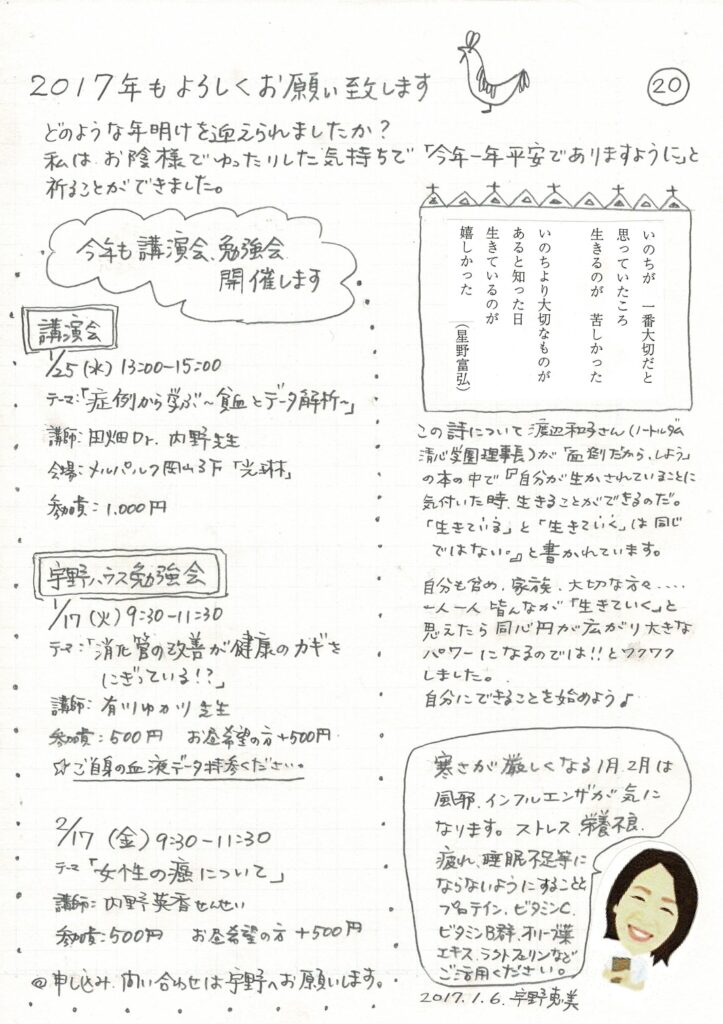 2017年もよろしくお願い致します
20
どのような年明けを迎えられましたか?
私はお陰様でゆったりした気持ちで「今年一年平安でありますように」と
祈ることができました。
今年も講演会、勉強会
開催します
講演会
1/25(水) 13:00-15:00
テーマ:「症例から学ぶ~貧血とデータ解析~」
講師:田畑Dr. 内野先生
会場:メルパルク岡山3F「光琳」
参加費:1,000円
宇野ハウス勉強会
1/17(火) 9:30-11:30
テーマ:「消化管の改善が健康のカギを
にぎっている!?」
講師:有川ゆかり先生
参加費:500円 お昼希望の方+500円
☆ご自身の血液データ持参ください。
2/17(金) 9:30-11:30
テーマ「女性の癌について」
講師:内野英香せんせい
参加費:500円 お昼希望の方+500円
@申し込み、問い合わせは宇野へお願いします。
いのちが 一番大切だと
思っていたころ
生きるのが 苦しかった
いのちより大切なものが
あると知った日
生きているのが
嬉しかった (星野富弘)
この詩について渡辺和子さん(ノートルダム
清心学園理事長)が「面倒だから、しよう」
の本の中で『自分が生かされていることに
気付いた時、生きることができるのだ。
「生きている」と「生きていく」は同じ
ではない。』と書かれています。
自分も含め、家族、大切な方々.....
一人一人皆んなが「生きていく」と
思えたら同心円が広がり大きな
パワーになるのでは!!とワクワク
しました。
自分にできることを始めよう♪
寒さが厳しくなる1月2月は
風邪、インフルエンザが気に
なります。ストレス、栄養不良、
疲れ、睡眠不足等に
ならないようにすること
プロテイン、ビタミンC、
ビタミンB群、オリーブ葉
エキス、ラクトフェリンなど
ご活用ください。
2017.1.6.宇野恵美